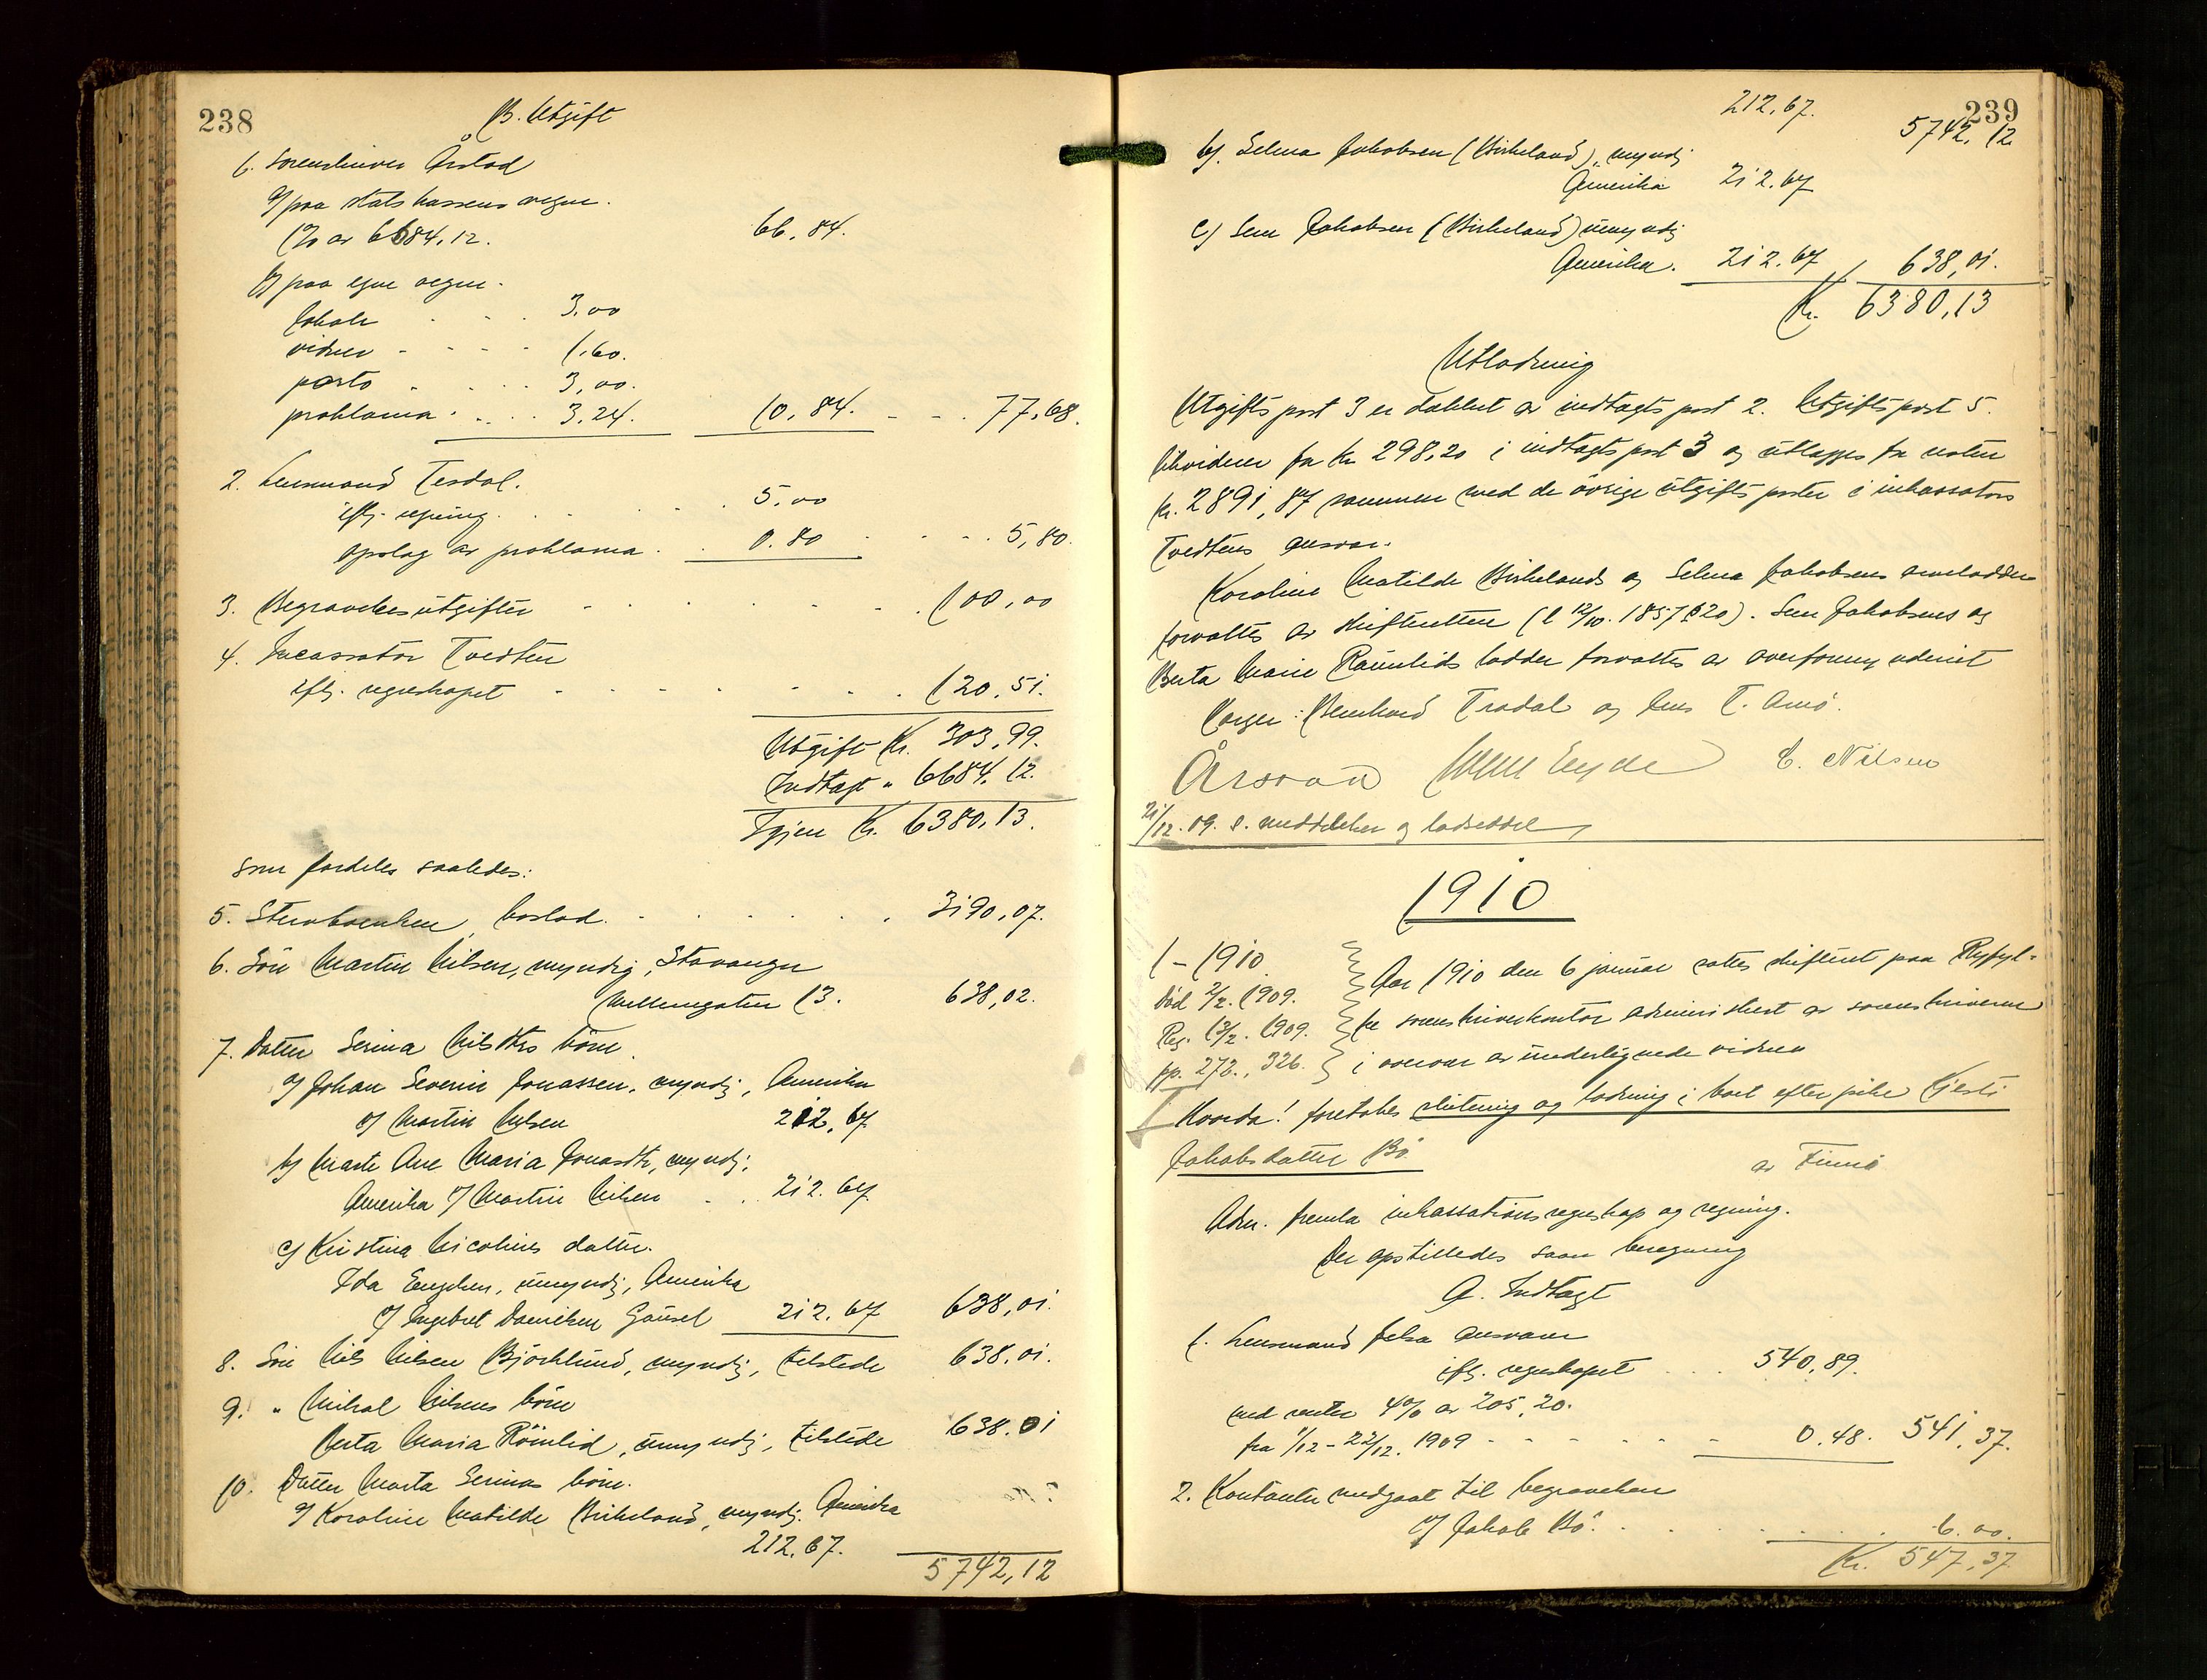 238
B. Utgift
1. Sorenskriver Årstad
a/ paa statskassens vegne.
1% av 6684,12. 66,84.
b/ paa egne vegne.
lokale . . . 3,00
vidner - - - - 1.60.
porto . . . . 3,00.
proklama . . . . 3,24. 10,84. - - . 77,68.
2. Lensmand Tesdal.
iflg. regning. . . . . 5.00
opslag av proklama . . 0.80 . . . 5,80.
3. Begravelsesutgifter - . . . . . 100,00
4. Incassator Tvedten
iflg. regnskapet - - - - . . . 120.51.
Utgift Kr. 303,99.
Indtægt " 6684,12.
Igjen Kr. 6380,13.
som fordeles saaledes:
5. Stervboenken, boslod. - . . . . . 3190,07.
6. Søn Martin Nilsen, myndig, Stavanger
13. 638,02.
7. Datter Serina Nilsdtrs børn.
a/ Johan Severin Jonassen, myndig, Amerika
v/ Martin Nilsen 212,67
b/ Marte Ane Maria Jonasdtr, myndig,
Amerika v/ Martin Nilsen . . 212.67
c/ Kristina Nicolines datter.
Ida Engelsen, umyndig, Amerika
v/ Ingebret Danielsen Gausel 212.67 638,01.
8. Søn Nils Nilsen Bjørklund, myndig, tilstede 638.01.
9. " Mikal Nilsens børn
Berta Maria Römlid, umyndig, tilstede 638.01
10. Datter Marta Serinas børn.
a/ Karoline Matilde Birkeland, myndig. Amerika
212.67.
5742,12
239
212,67. 5742,12.
b/. Selma Jakobsen (Birkeland), myndig
Amerika 212.67
c/ Sem Jakobsen (Birkeland) umyndig
Amerika. 212.67 / 638,01.
Kr. 6380,13
Utlodning
Utgiftspost 3 er dækket av indtægtspost 2. Utgiftspost 5.
likviderer for Kr 298,20 i indtægtspost 3 og utlægges for resten
kr. 2891,87 sammen med de øvrige utgiftsposter i inkassators
Tvedtens ansvar.
Karoline Matilde Birkelands og Selma Jakobsens arvelodder
forvaltes av skifteretten (l 12/10. 1857 § 20). Sem Jakobsens og
Berta Marie Raumlids lodder forvaltes av overformynderiet
Verger: Bernhard Tradal og Jens T. Amø.
Årstad Eyde E. Nilsen
21/12.09. s. meddelelser og lodseddel
1910
1 - 1910
Død 2/2. 1909.
Reg. 13/2. 1909.
fp. 272., 326.
Aar 1910 den 6 januar sattes skifteret paa Ryfyl-
ke sorenskriverkontor administrert av sorenskriveren
i overvær av undertegnede vidner
Hvorda! foretokes slutning og lodning i boet efter pike Kjersti
Jakobsdatter Bø av Finnø
Adm. fremla inkassations regnskap og regning.
Der opstilledes saan beregning
A. Indtægt
1. Lensmand Jelsa ansvarer
iflg. regnskapet . . . 540,89.
med renter 4% av 205,20.
fra 1/12 - 22/12. 1909 - - - - - - 0.48. 541,37.
2. Kontanter medgaat til begravelsen
v/ Jakob Bø. . . . . . . . . 6.00.
Kr. 547,37.